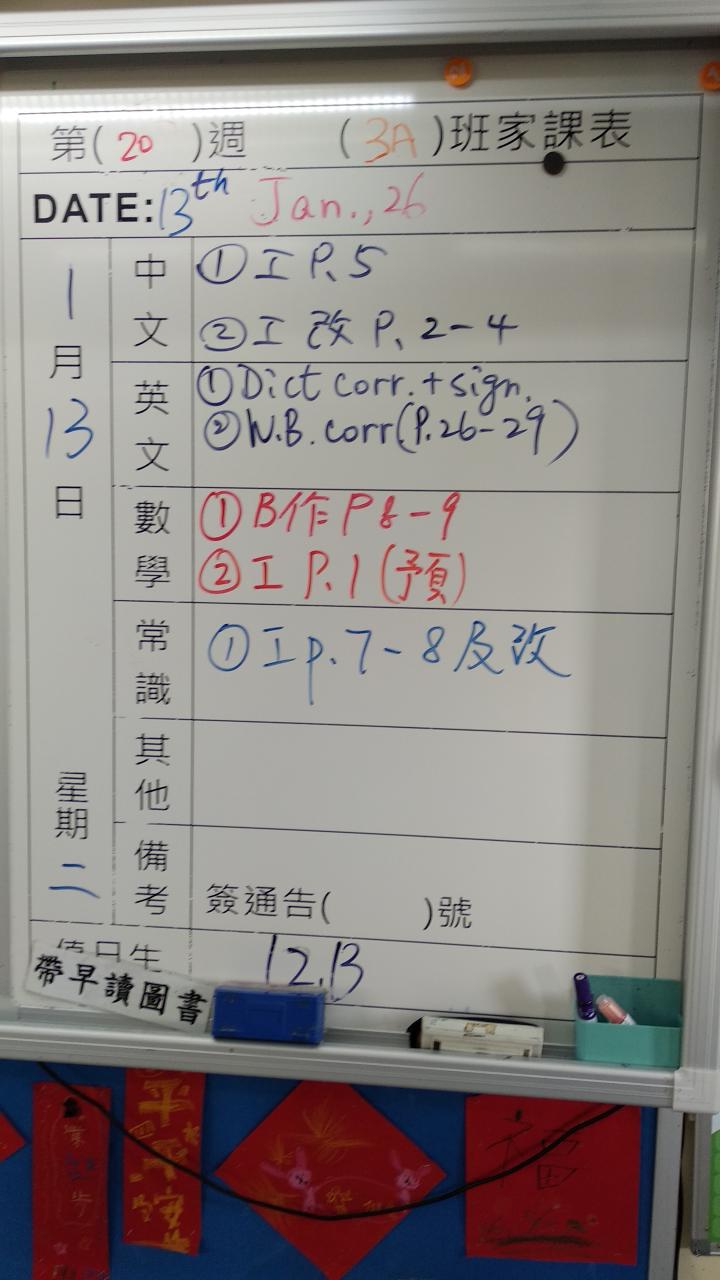 第(20)週 (3A)班家課表
DATE:13th Jan.,26
1月13日 星期二
中文
①工 P.5
②工 改 P. 2-4
英文
①Dict corr.+sign.
②W.B. corr(P.26-29)
數學
①B作 P 8-9
②工 P.1 (預)
常識
①工p.7-8及改
其他
備考
簽通告( )號
值日生
12.13
帶早讀圖書
福